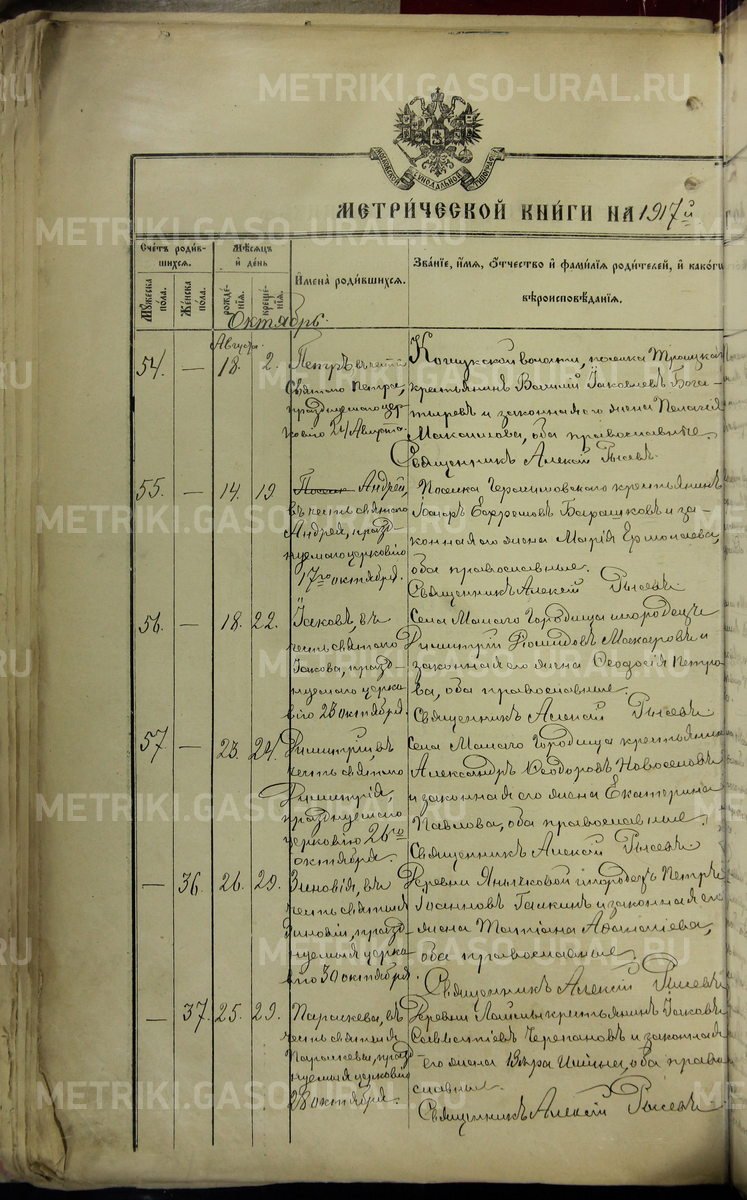 METRIKI.GASO-URAL.RU
МОСКОВСКОЙ СУНОДАЛЬНОЙ ТИПОГРАФІИ
МЕТРИ́ЧЕСКОЙ КНИ́ГИ НА 1917й
Сче́тъ роди́в-
шихся.
Мѣ́сяцъ
и҆ де́нь
Мꙋ́жеска по́ла.
Же́нска по́ла.
рожде́нїя.
креще́нїя.
И҆мена̀ роди́вшихся.
Зва́нїе, и҆́мя, ѻ҆́тчество и҆ фами́лїя роди́телей, и҆ како́гѡ
вѣроисповѣ́данїя.
Октябрь.
Августа.
54. — 18. 2. Петръ, въ честь
святаго Петра,
празднуемаго цер-
ковію 24 Августа.
Кошукской волости, поселка Троицкаго
крестьянинъ Василій Іаковлевъ Бога-
тыревъ и законная его жена Пелагія
Максимова, оба православные.
Священникъ Алексій Рысевъ.
55. — 14. 19 Андрей,
въ честь святаго
Андрея, празд-
нуемаго церковію
17го октября.
Поселка Герасимовскаго крестьянинъ
Захаръ Евфремовъ Барашковъ и за-
конная его жена Марія Ермолаева,
оба православные.
Священникъ Алексій Рысевъ
56. — 18. 22. Іаковъ, въ
честь святаго
Іакова, празд-
нуемаго церко-
вію 23 октября.
Села Малаго Городища инородецъ
Димитрій Діомидовъ Макаровъ и
законная его жена Ѳеодосія Петро-
ва, оба православные.
Священникъ Алексій Рысевъ
57 — 23. 24. Димитрій, въ
честь святаго
Димитрія,
празднуемаго
церковію 26го
октября.
Села Малаго Городища крестьянинъ
Александръ Ѳеодоровъ Новоселовъ
и законная его жена Екатерина
Павлова, оба православные.
Священникъ Алексій Рысевъ
— 36. 26. 29. Зиновія, въ
честь святыя
Зиновіи, празд-
нуемыя церко-
вію 30 октября
Деревни Янычковой инородецъ Петръ
Іоанновъ Галкинъ и законная его
жена Татіана Аѳанасіева,
оба православные.
Священникъ Алексій Рысевъ
— 37. 25. 29. Параскева, въ
честь святыя
Параскевы, празд-
нуемыя церковію
28 октября.
Деревни Лаймы крестьянинъ Іаковъ
Савватіевъ Черепановъ и законная
его жена Вѣра Ильина, оба право-
славные.
Священникъ Алексій Рысевъ